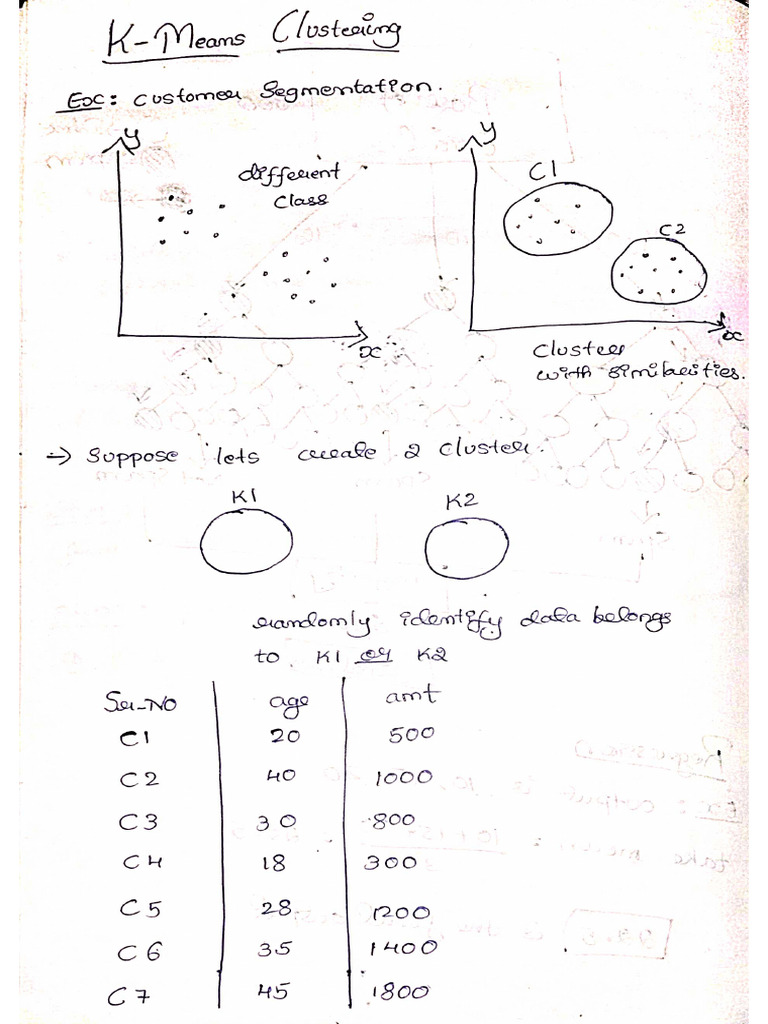 K-Means Clustering
Ex: customer segmentation.
y
different
class
x
y
C1
C2
x
Cluster
with similarities.
→ suppose lets create 2 cluster.
K1
K2
randomly identify data belongs
to K1 or K2
Ser-NO age amt
C1 20 500
C2 40 1000
C3 30 800
C4 18 300
C5 28 1200
C6 35 1400
C7 45 1800